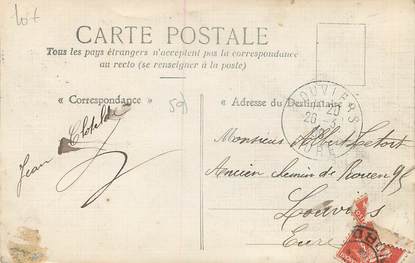 lot
CARTE POSTALE
Tous les pays étrangers n'acceptent pas la correspondance
au recto (se renseigner à la poste)
« Correspondance »
59
« Adresse du Destinataire »
LOUVIERS
20
26 - 3
EURE
Jean Clotilde
Monsieur Albert Letort
Ancien chemin de Rouen 95
Louviers
Eure